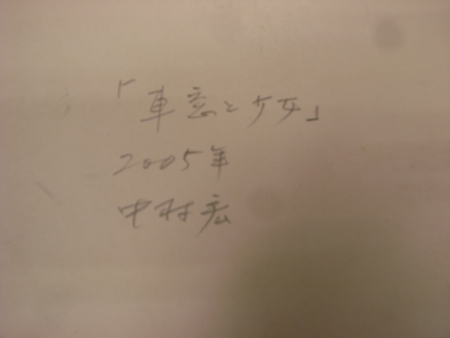 「車窓と少女」
2005年
中村宏